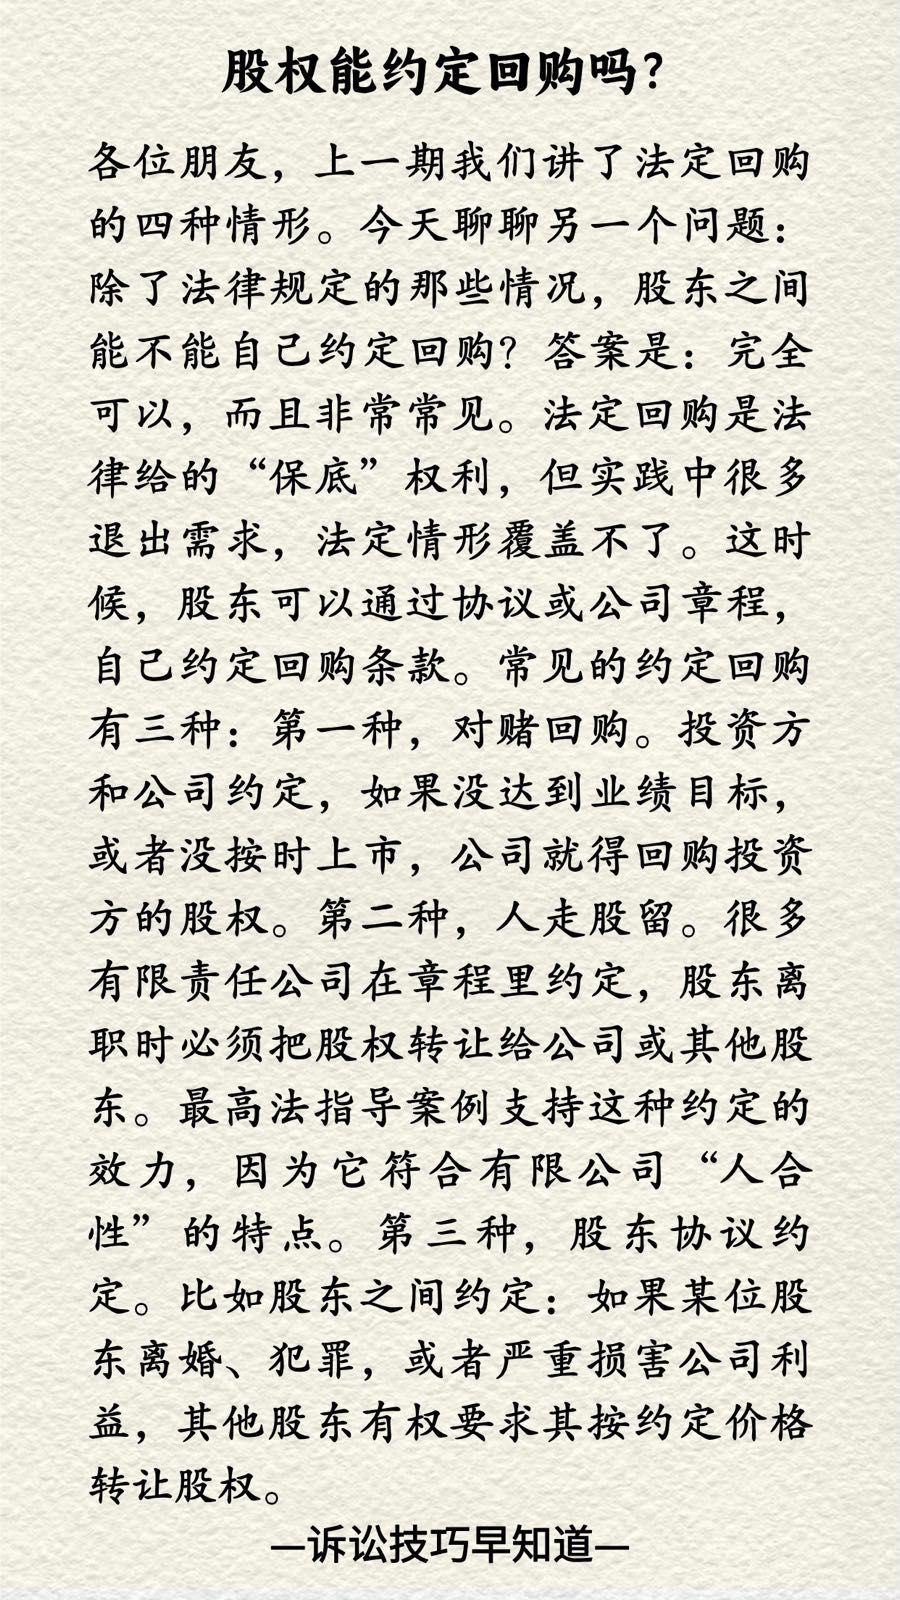 股权能约定回购吗？
各位朋友，上一期我们讲了法定回购
的四种情形。今天聊聊另一个问题：
除了法律规定的那些情况，股东之间
能不能自己约定回购？答案是：完全
可以，而且非常常见。法定回购是法
律给的“保底”权利，但实践中很多
退出需求，法定情形覆盖不了。这时
候，股东可以通过协议或公司章程，
自己约定回购条款。常见的约定回购
有三种：第一种，对赌回购。投资方
和公司约定，如果没达到业绩目标，
或者没按时上市，公司就得回购投资
方的股权。第二种，人走股留。很多
有限责任公司在章程里约定，股东离
职时必须把股权转让给公司或其他股
东。最高法指导案例支持这种约定的
效力，因为它符合有限公司“人合
性”的特点。第三种，股东协议约
定。比如股东之间约定：如果某位股
东离婚、犯罪，或者严重损害公司利
益，其他股东有权要求其按约定价格
转让股权。
—诉讼技巧早知道—